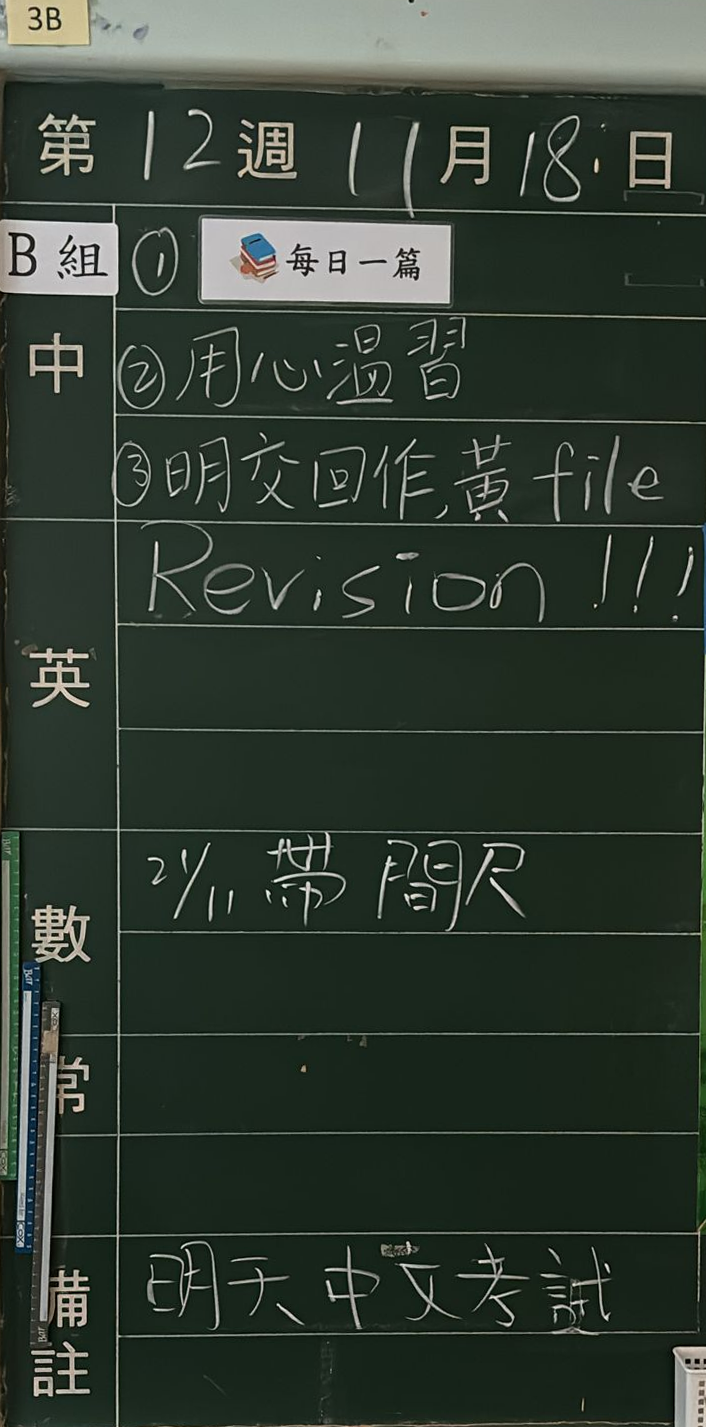 3B
第 12 週 11 月 18 日
B 組 ① 每日一篇
中 ②用心温習
③明交回作,黃 file
Revision !!!
英
21/11 帶 間尺
數
常
備註 明天 中文考試